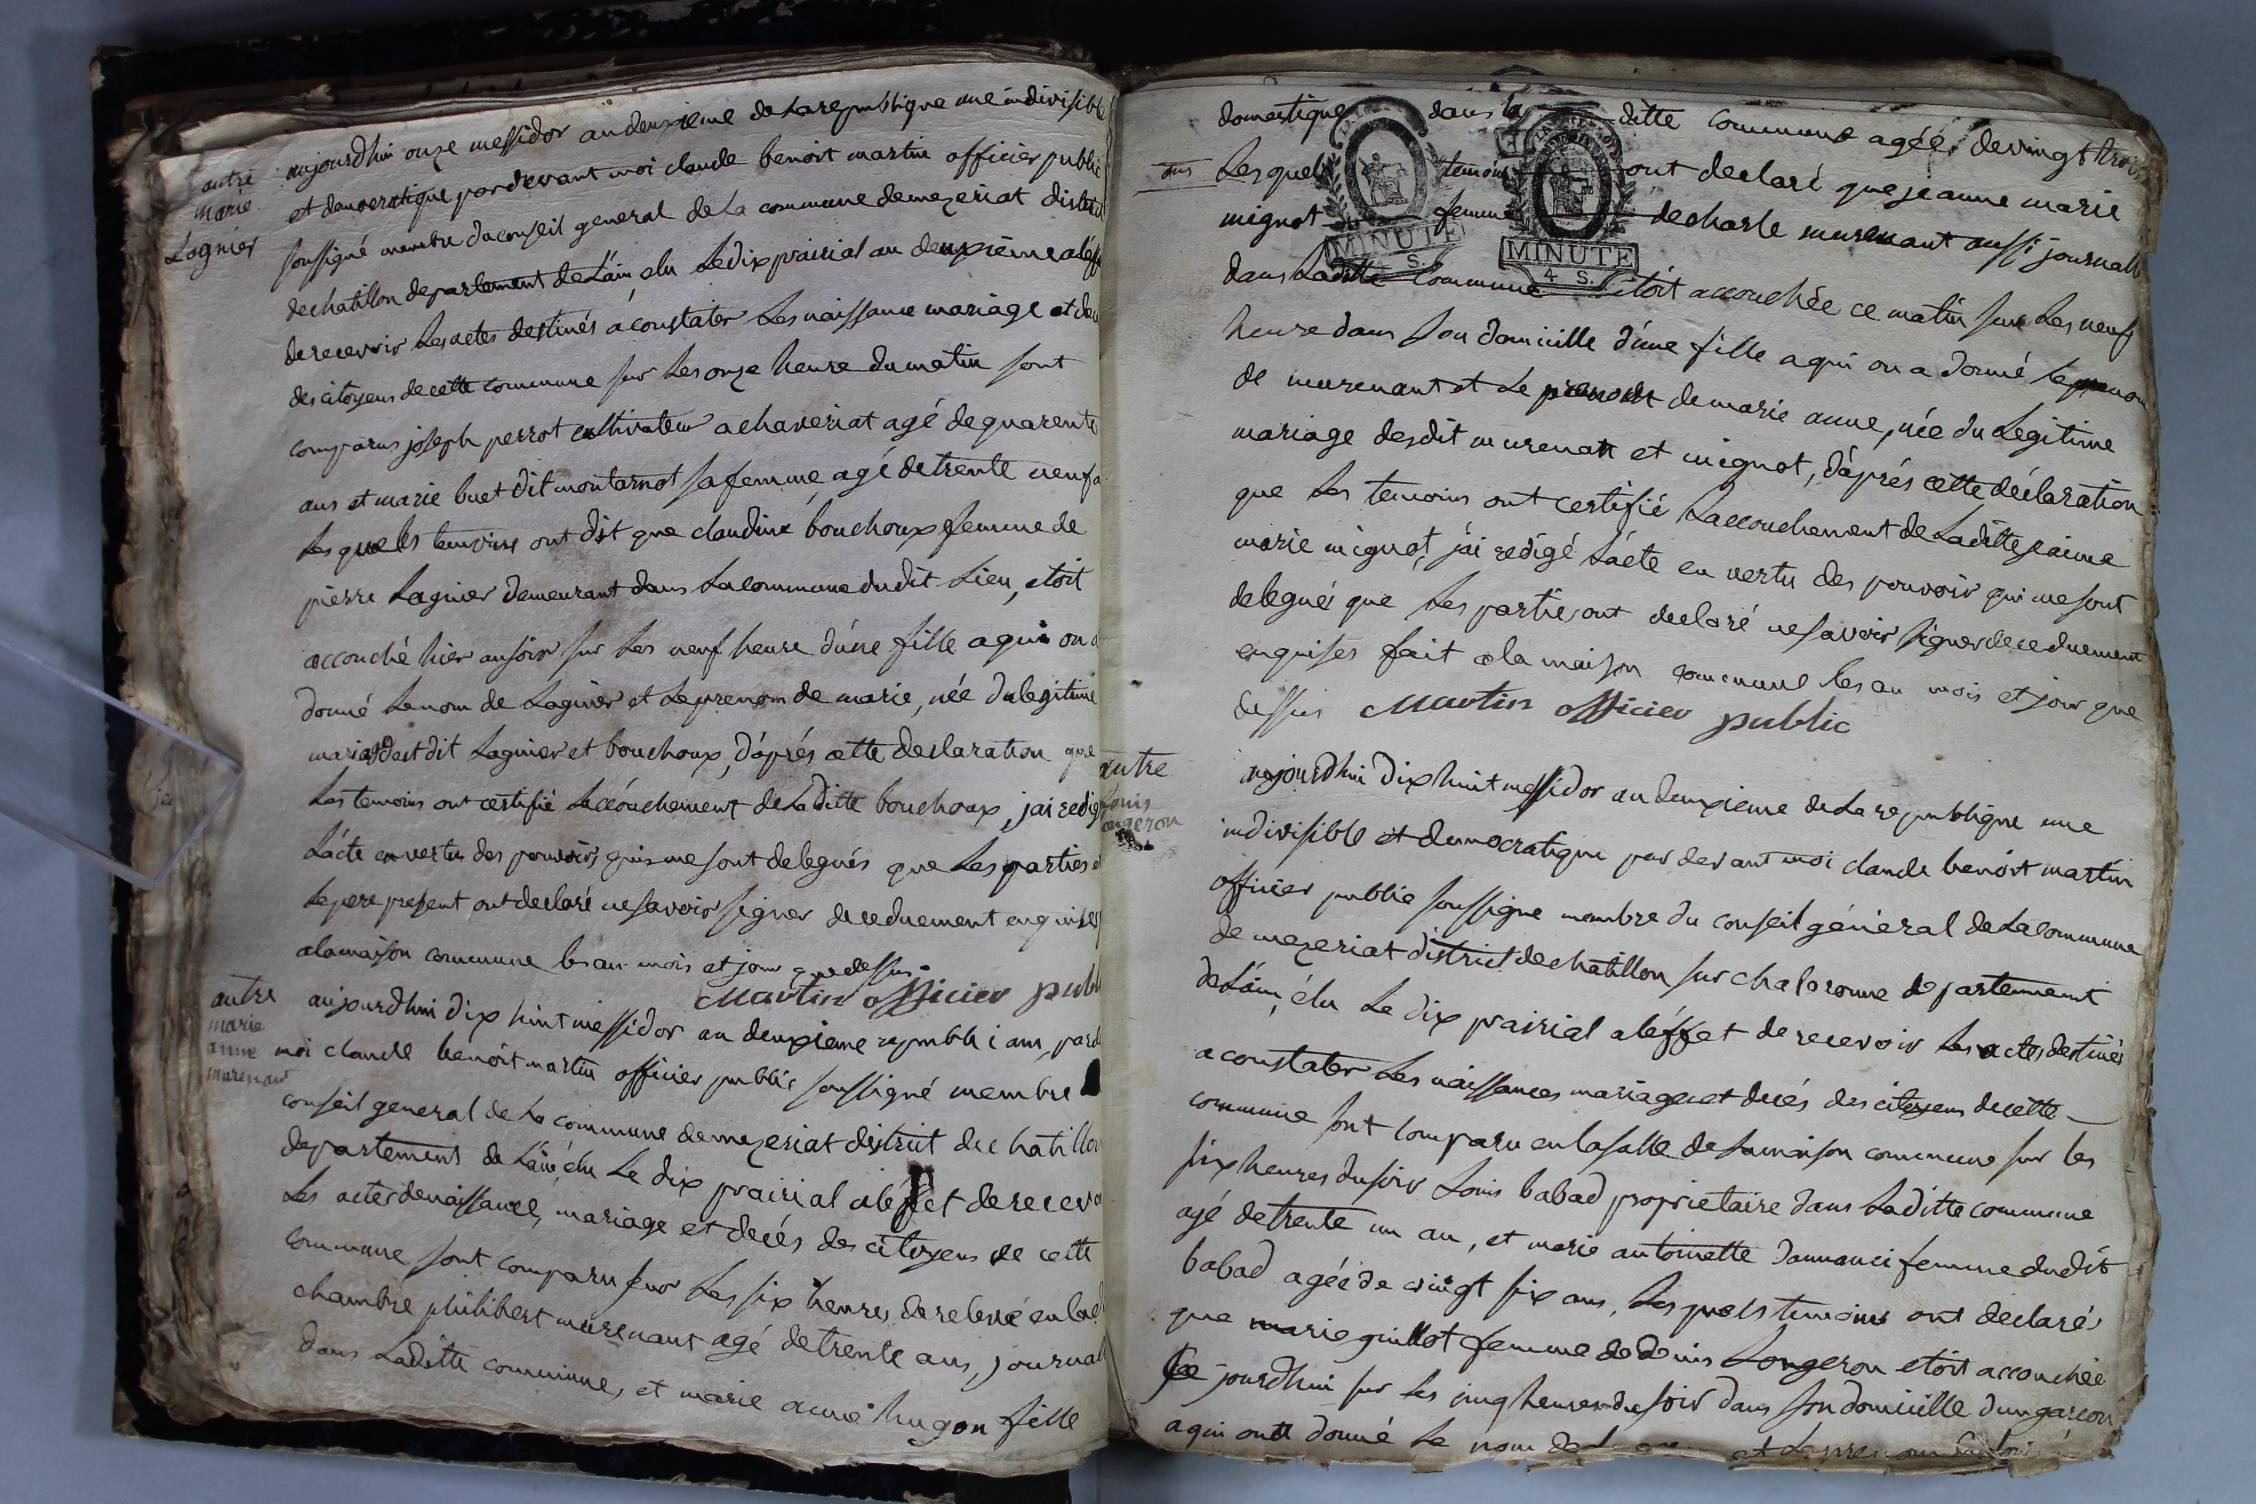 autre
marie
Lagnier
aujourdhui onze messidor an deuxieme de la republique une indivisible
et democratique pardevant moi claude benoit martin officier public
soussigné membre du conseil general de la commune de mezeriat district
de chatillon departement de L'ain, elu Le dix prairial an deuxième a l'éff
de recevoir Les actes destinés a constater Les naissance mariage et dec
des citoyens de cette commune sur Les onze heure du matin sont
comparus joseph perrot cultivateur a chaveriat agé de quarente
ans et marie buet dit montarnot sa femme, agé de trente neuf a
Lesquels temoins ont dit que claudine bouchoux femme de
pierre Lagnier demeurant dans La commune dudit Lieu, etoit
accouché hier au soir sur Les neuf heure d'une fille a qui on a
donné Le nom de Lagnier et Le prenom de marie, née du legitime
mariage desdit Lagnier et bouchoux, d'après cette declaration que
Les temoins ont certifié L'accouchement de La ditte bouchoux, jai redigé
L'acte en vertu des pouvoirs qui me sont delegués que Les parties et
Le pere present ont declaré ne savoir signer de ce duement enquises
a la maison commune les an mois et jour que dessus.
Martin officier publ
autre
marie
anne
murenant
aujourdhui dix huit messidor an deuxieme republi i am, pard
moi claude benoit martin officier public soussigné membre
conseil general de La commune de mezeriat district de chatillon
departement de L'ain, élu Le dix prairial a l'éffet de recevo
Les actes de naissance, mariage et decés des citoyens de cette
commune sont comparu sur Les six heures de relevé en lad
chambre philibert murenant agé de trente ans, journall
dans Laditte commune, et marie anne hugon fille
domestique dans la ditte commune agée de vingt trois
ans Lesquels temoins ont declaré que jeanne marie
mignot femme de charle murenant aussi journall
dans Laditte commune étoit accouchée ce matin sur Les neuf
heure dans son domicille d'une fille a qui on a donné Le nom
de murenant et Le prenom de marie anne, née du Legitime
mariage desdit murenant et mignot, d'après cette déclaration
que Les temoins ont certifié L'accouchement de Laditte jeanne
marie mignot, j'ai redigé L'acte en vertu des pouvoir qui me sont
delegués que Les parties ont declaré ne savoir signer de ce duement
enquises fait a la maison commune les an mois et jour que
dessus Martin officier public
MINUTE
4 S.
MINUTE
4 S.
autre
Louis
Longeron
aujourdhui dix huit messidor an deuxieme de La republique une
indivisible et democratique par devant moi claude benoit martin
officier public soussigné membre du conseil géneral de La commune
de mezeriat district de chatillon sur chalaronne departement
de L'ain, élu Le dix prairial a l'éffet de recevoir Les actes destinés
a constater Les naissances mariages et decés des citoyens de cette
commune sont comparu en la salle de La maison commune sur les
six heures du soir Louis babad proprietaire dans Laditte commune
agé de trente un an, et marie antoinette dannanci femme dudit
babad agée de vingt six ans, Lesquels temoins ont declaré
que marie guillot femme de denis Longeron etoit accouchée
Ce jourdhui sur les cinq heures du soir dans son domicille d'un garçon
a qui on a donné Le nom de et Le prenom de Louis